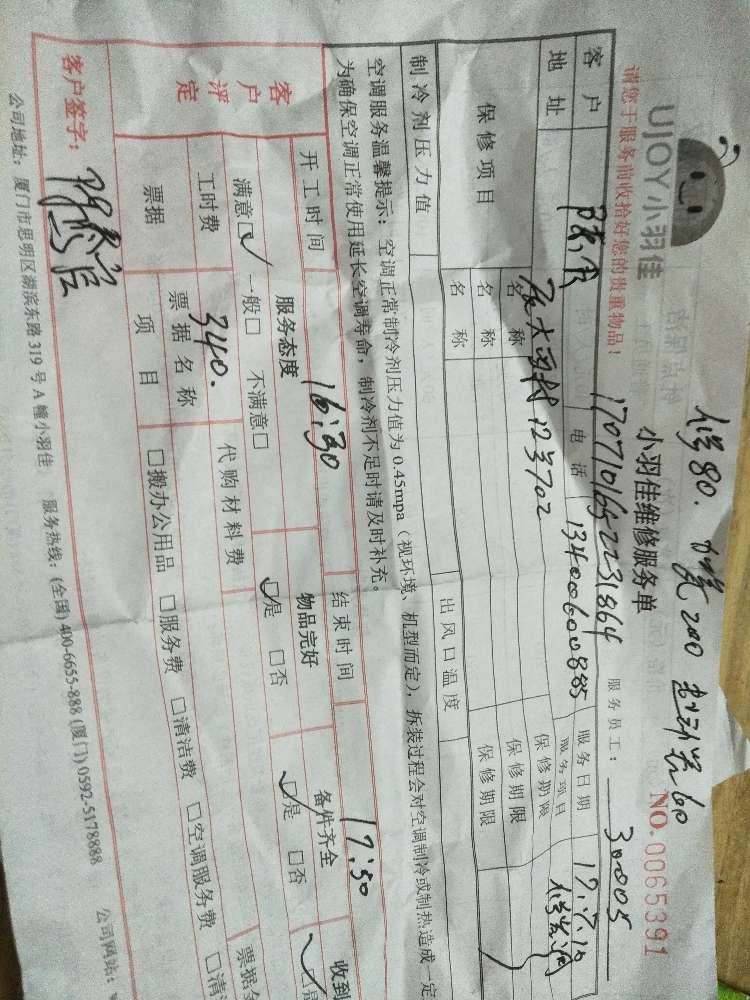 修80. 200 起动器60
UJOY小羽佳
小羽佳维修服务单
NO.0065391
请您于服务前收拾好您的贵重物品!
17071016522231864 服务员工: 30805
客户 陈 电话 13400600885 服务日期 17.7.10
地址 12号702 服务项目
保修项目 名称 保修期限
名称 保修期限
名称 保修期限
制冷剂压力值 出风口温度
空调服务温馨提示: 空调正常制冷剂压力值为 0.45mpa (视环境、机型而定), 拆装过程会对空调制冷或制热造成一定
为确保空调正常使用延长空调寿命, 制冷剂不足时请及时补充。
客户评定 开工时间 16:30 结束时间 17:50
服务态度 物品完好 备件齐全 收到
满意☑ 一般□ 不满意□ ☑是 □否 ☑是 □否
工时费 340. 代购材料费
票据 票据名称
项目 □搬办公用品 □服务费 □清洁费 □空调服务费 □清
客户签字:
公司地址: 厦门市思明区湖滨东路 319 号 A 幢小羽佳 服务热线: (全国) 400-6655-888 (厦门) 0592-5178888 公司网站: